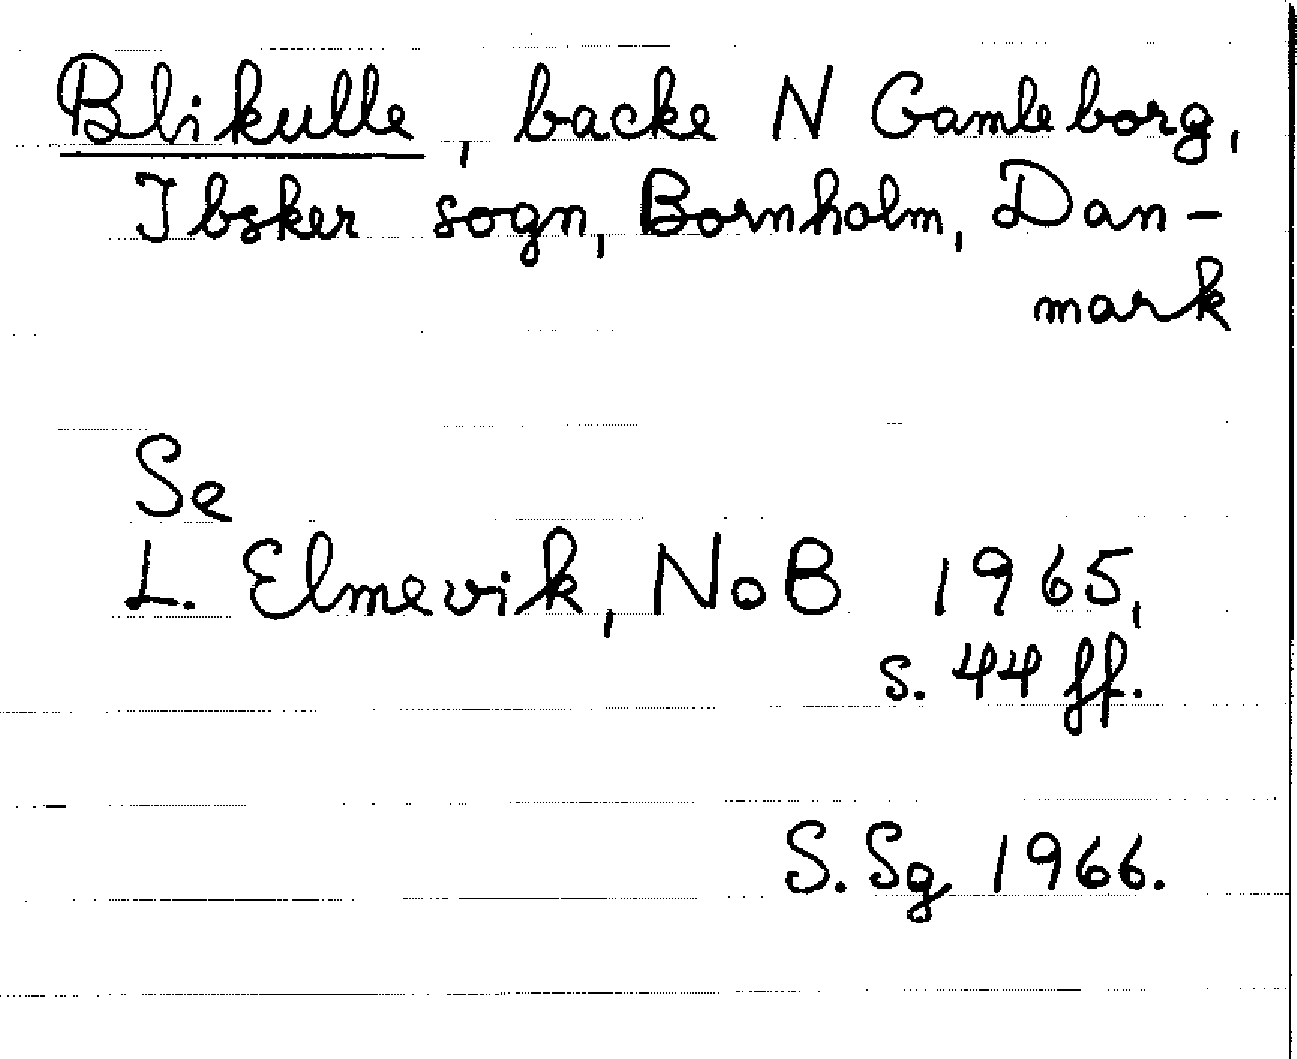 Blikulle, backe N Gamleborg,
Ibsker sogn, Bornholm, Dan-
mark
Se
L. Elmevik, NoB 1965,
s. 44 ff.
S. Sg 1966.